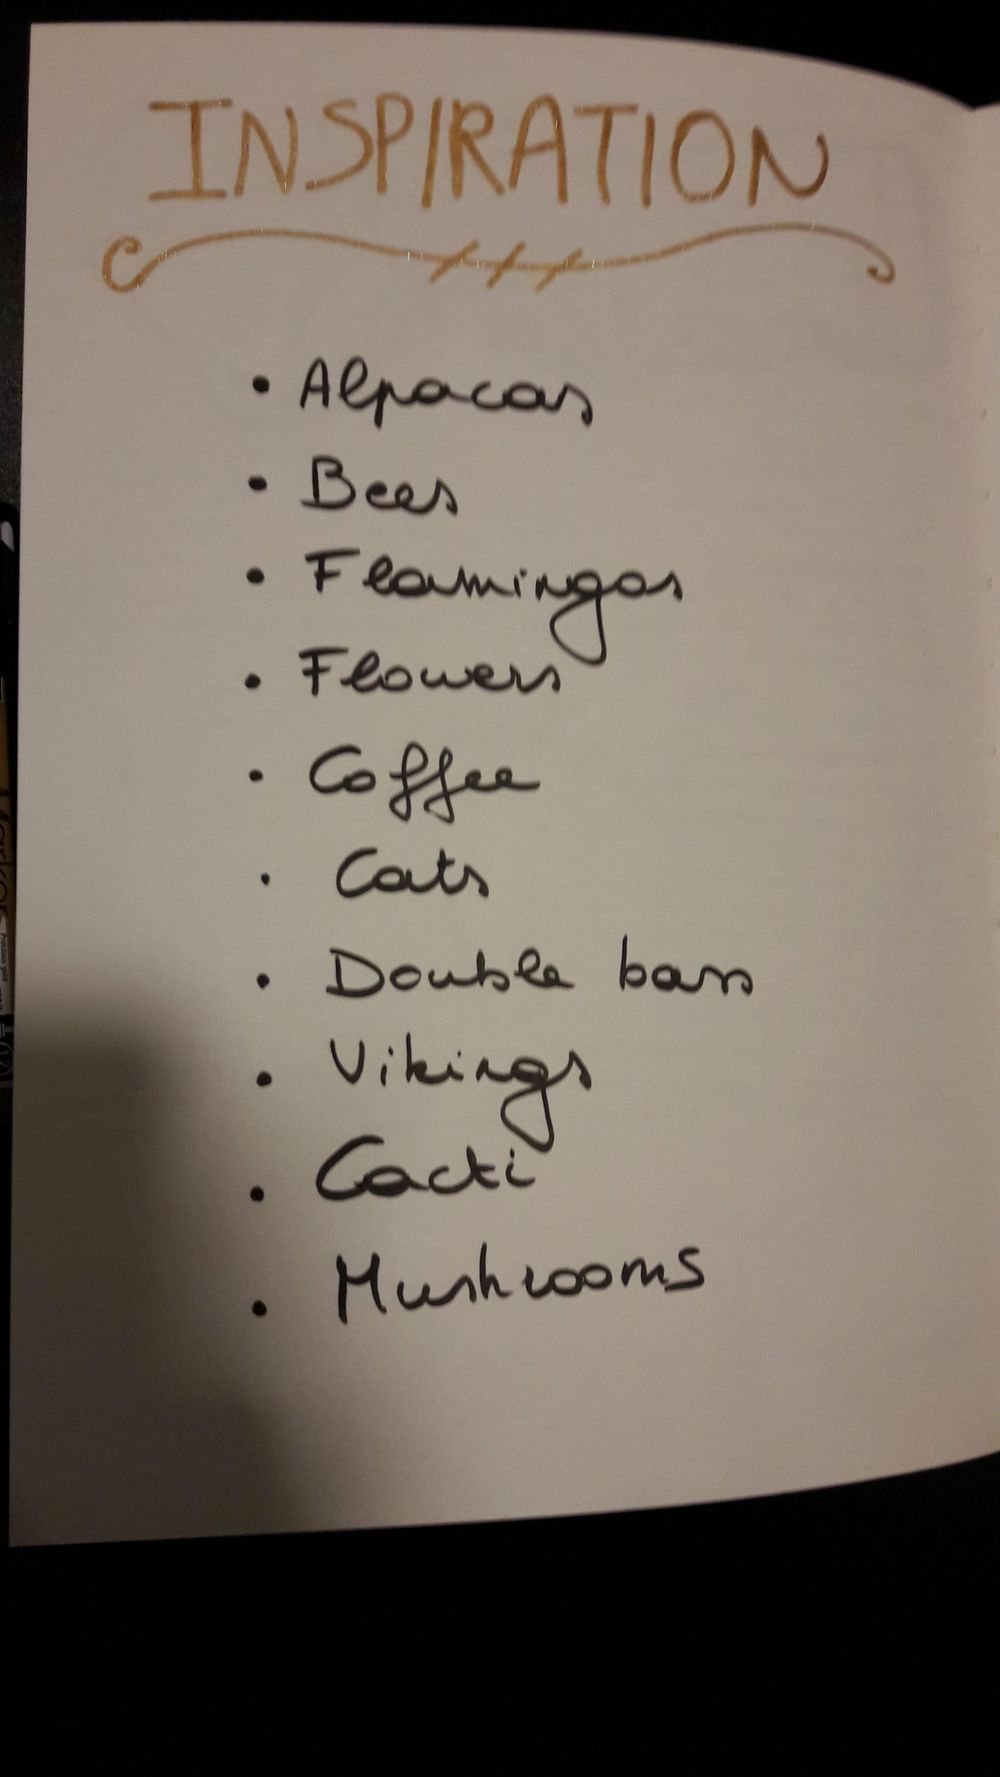 INSPIRATION
• Alpacas
• Bees
• Flamingos
• Flowers
• Coffee
• Cats
• Double bass
• Vikings
• Cacti
• Mushrooms